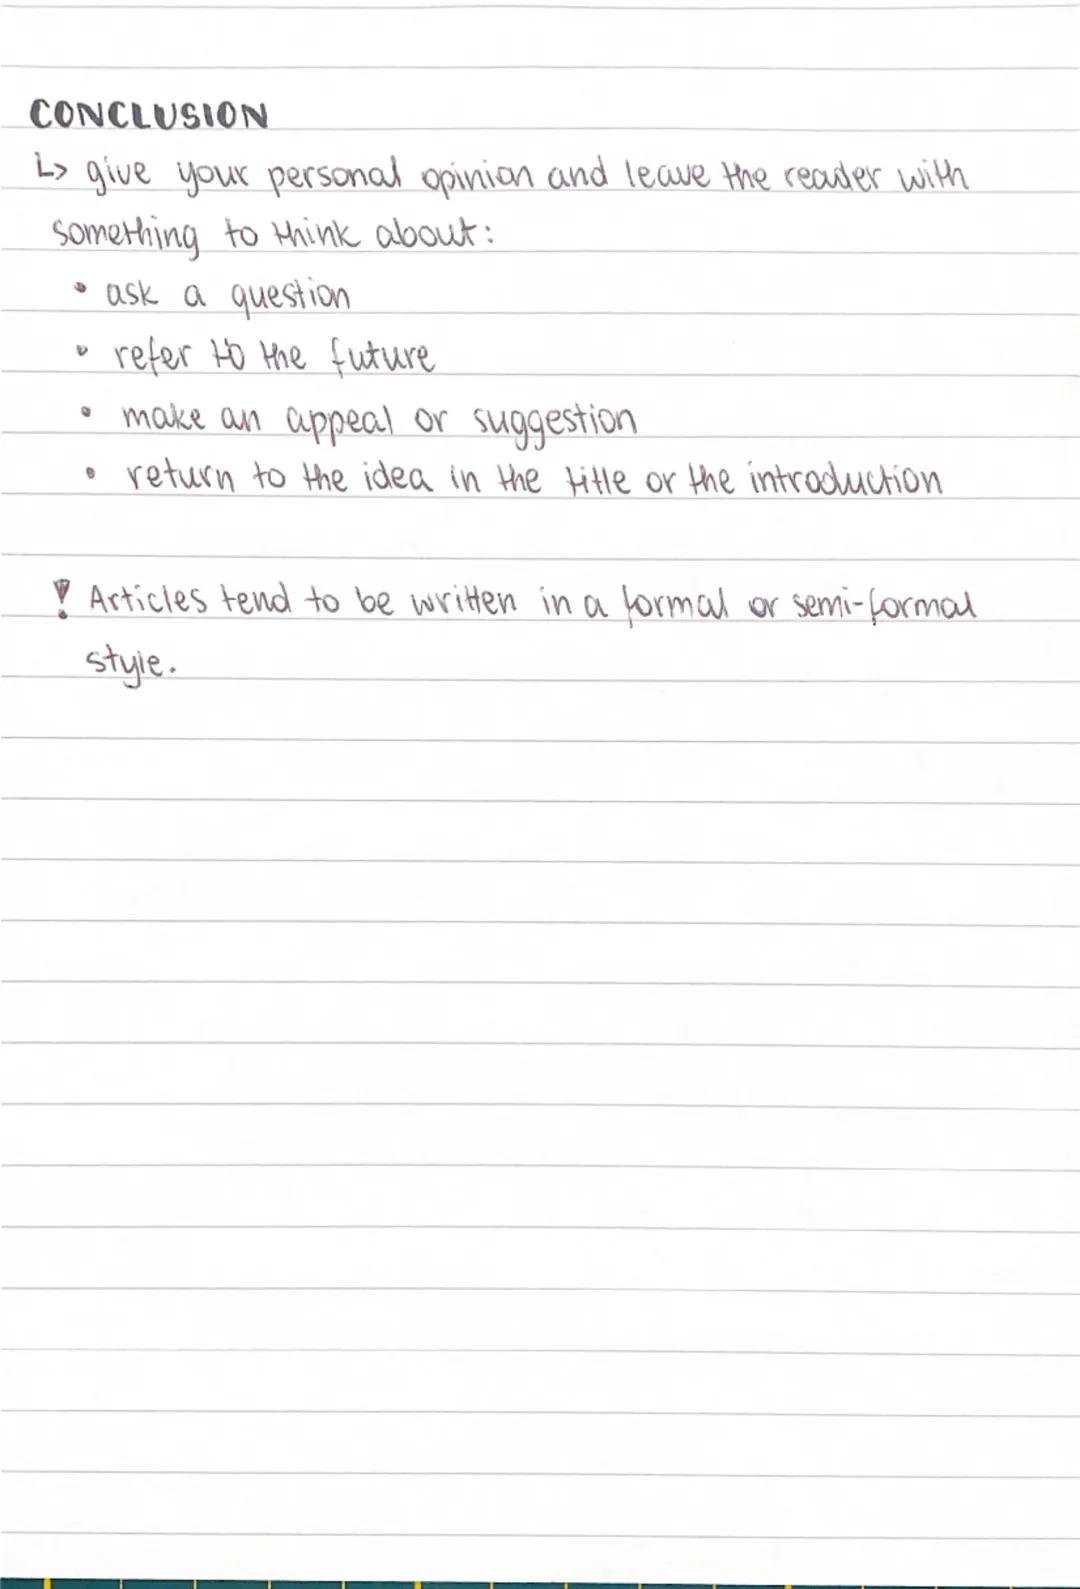 CONCLUSION
↳ give your personal opinion and leave the reader with
something to think about:
• ask a question
• refer to the future
• make an appeal or suggestion
• return to the idea in the title or the introduction
! Articles tend to be written in a formal or semi-formal
style.